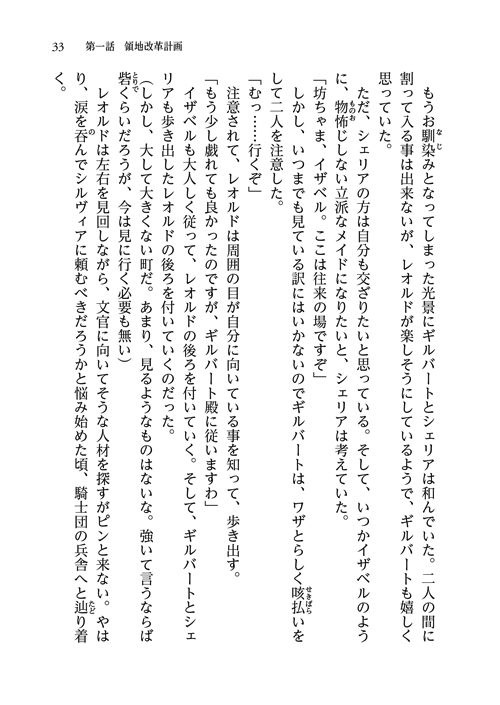 33　第一話　領地改革計画
　もうお馴染みとなってしまった光景にギルバートとシェリアは和んでいた。二人の間に
割って入る事は出来ないが、レオルドが楽しそうにしているようで、ギルバートも嬉しく
思っていた。
　ただ、シェリアの方は自分も交ざりたいと思っている。そして、いつかイザベルのよう
に、物怖じしない立派なメイドになりたいと、シェリアは考えていた。
「坊ちゃま、イザベル。ここは往来の場ですぞ」
　しかし、いつまでも見ている訳にはいかないのでギルバートは、ワザとらしく咳払いを
して二人を注意した。
「むっ……行くぞ」
　注意されて、レオルドは周囲の目が自分に向いている事を知って、歩き出す。
「もう少し戯れても良かったのですが、ギルバート殿に従いますわ」
　イザベルも大人しく従って、レオルドの後ろを付いていく。そして、ギルバートとシェ
リアも歩き出したレオルドの後ろを付いていくのだった。
（しかし、大して大きくない町だ。あまり、見るようなものはないな。強いて言うならば
砦くらいだろうが、今は見に行く必要も無い）
　レオルドは左右を見回しながら、文官に向いてそうな人材を探すがピンと来ない。やは
り、涙を呑んでシルヴィアに頼むべきだろうかと悩み始めた頃、騎士団の兵舎へと辿り着
く。